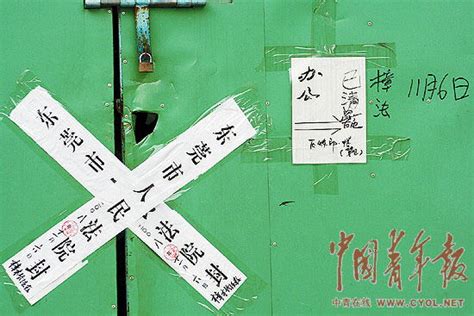 东莞市人民法院封
东莞市
法院封
办公
已清
樟法
11月6日
中国青年报
中青在线 WWW.CYOL.NET